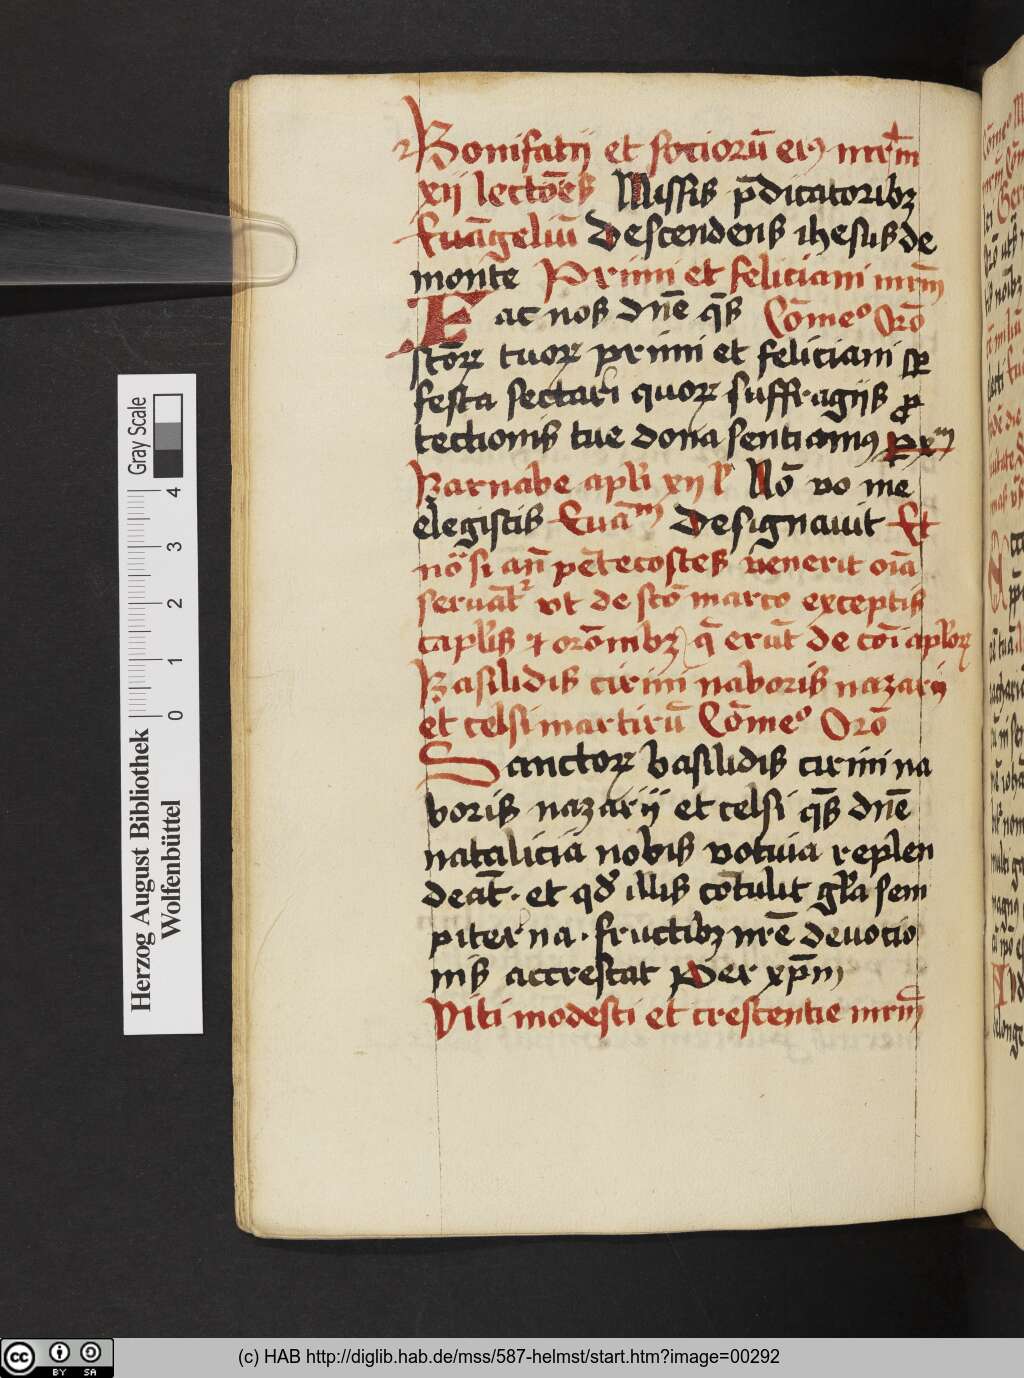 Bonifatij et socioru̅ eiꝰ mr̅m
xij lecto̅es Missis p̅dicatoribꝫ
Eua̅geliu̅ Descendens ihesus de
monte Primi et feliciani mr̅m
Fac nos dn̅e q̅s Co̅meꝰ Oro̅
sto̅rꝝ tuoꝝ primi et feliciani sꝑ
festa sectari quoꝝ suffragijs ꝓ
tectionis tue dona sentiamꝰ
Barnabe apl̅i xij l̅ No̅ vo me
elegistis Eua̅m Designauit Et
no̅ si an̅ pe̅tecostes venerit oi̅a
serua̅t᷑ vt de sco̅ marco exceptis
capl̅is ⁊ oro̅nibꝫ q̅ eru̅t de co̅i apl̅oꝝ
Basilidis cirini naboris nazarij
et celsi martiru̅ Co̅meꝰ Oro̅
Sanctoꝝ basilidis cirini na
boris nazarij et celsi q̅s dn̅e
natalicia nobis votiua replen
dea̅t · et qd̅ illis co̅tulit gl̅a sem
piterna · fructibꝫ nr̅e deuocio
nis accrescat Per xp̅m
Viti modesti et crescentie mr̅m
Herzog August Bibliothek
Wolfenbüttel
0 1 2 3 4
Gray Scale
cc BY SA
(c) HAB http://diglib.hab.de/mss/587-helmst/start.htm?image=00292